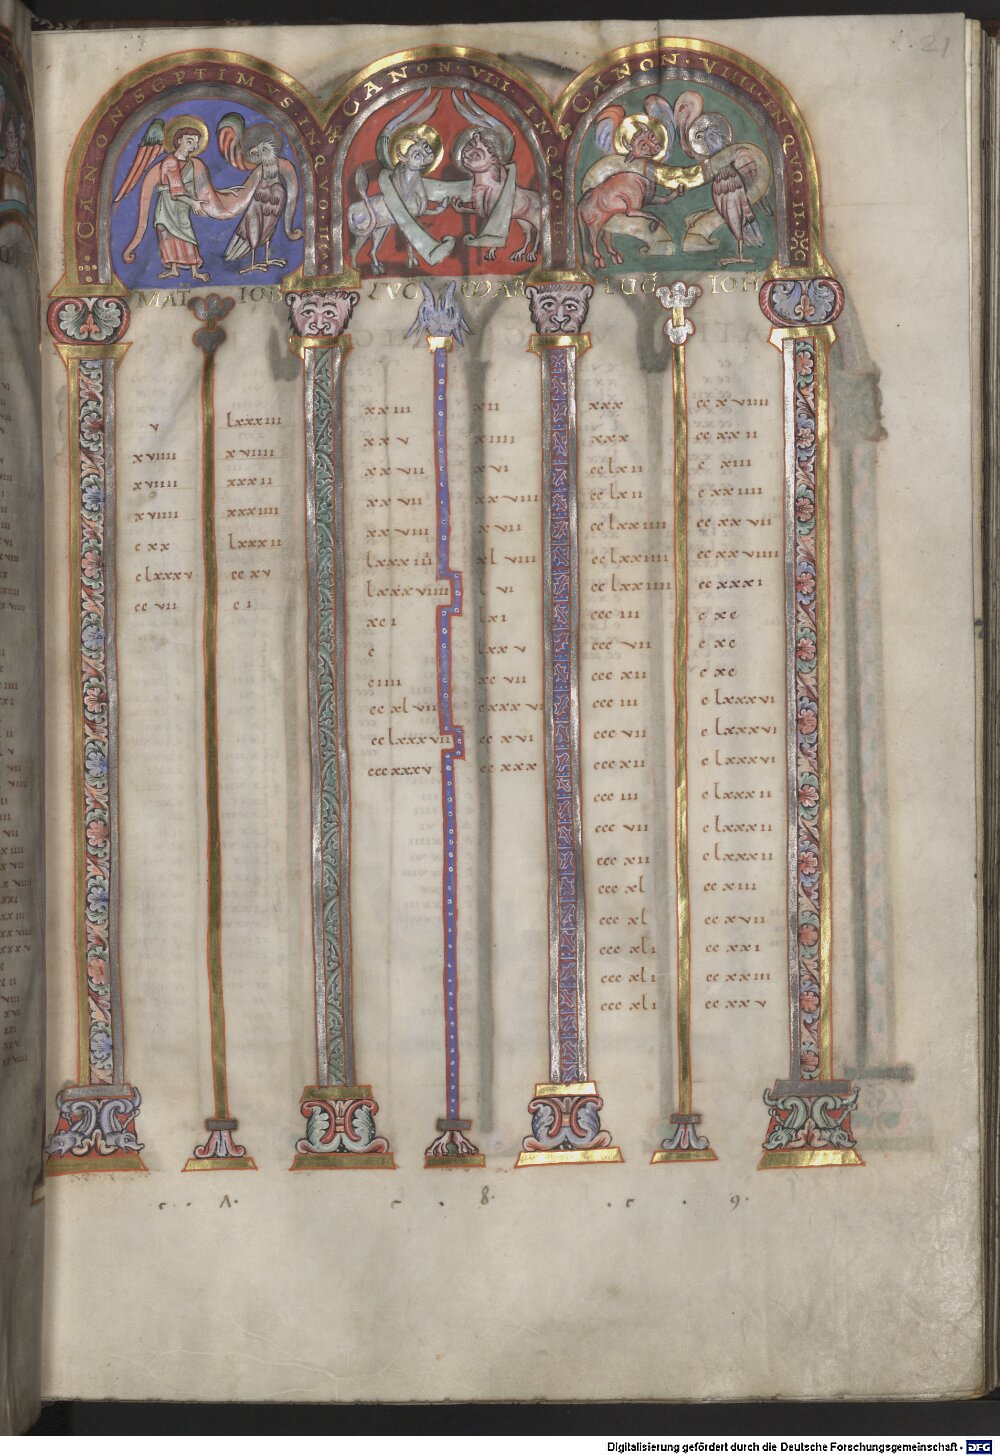 21
CANON · SEPTIMVS · IN QVO · II ·
CANON · VIII · IN QVO · II ·
CANON · VIIII · IN QVO · II ·
MAT IOH LVC MAR LVC IOH
v lxxxiii
xviiii xviiii
xviiii xxxii
xviiii xxxiiii
cxx lxxxii
clxxxv ccxv
ccvii ci
xxiii xii
xxv xiiii
xxvii xvi
xxvii xxviii
xxviii xvii
lxxxiiii xlviii
lxxxviiii lvi
xci lxi
c lxxv
ciiii xcvii
ccxlvii cxxxvi
cclxxxvii ccxvi
cccxxxv ccxxx
xxx ccxviiii
xxx ccxxii
cclxii cxiii
cclxii cxxiiii
cclxxiiii ccxxvii
cclxxiiii ccxxviiii
cclxxiiii ccxxxi
ccciii cxc
cccvii cxc
cccxii cxc
ccciii clxxxvi
cccvii clxxxvi
cccxii clxxxvi
ccciii clxxxii
cccvii clxxxii
cccxii clxxxii
cccxl ccxiii
cccxl ccxvii
cccxli ccxxi
cccxli ccxxiii
cccxli ccxxv
c · Λ ·
c · 8 ·
· c · 9 ·
Digitalisierung gefördert durch die Deutsche Forschungsgemeinschaft - DFG